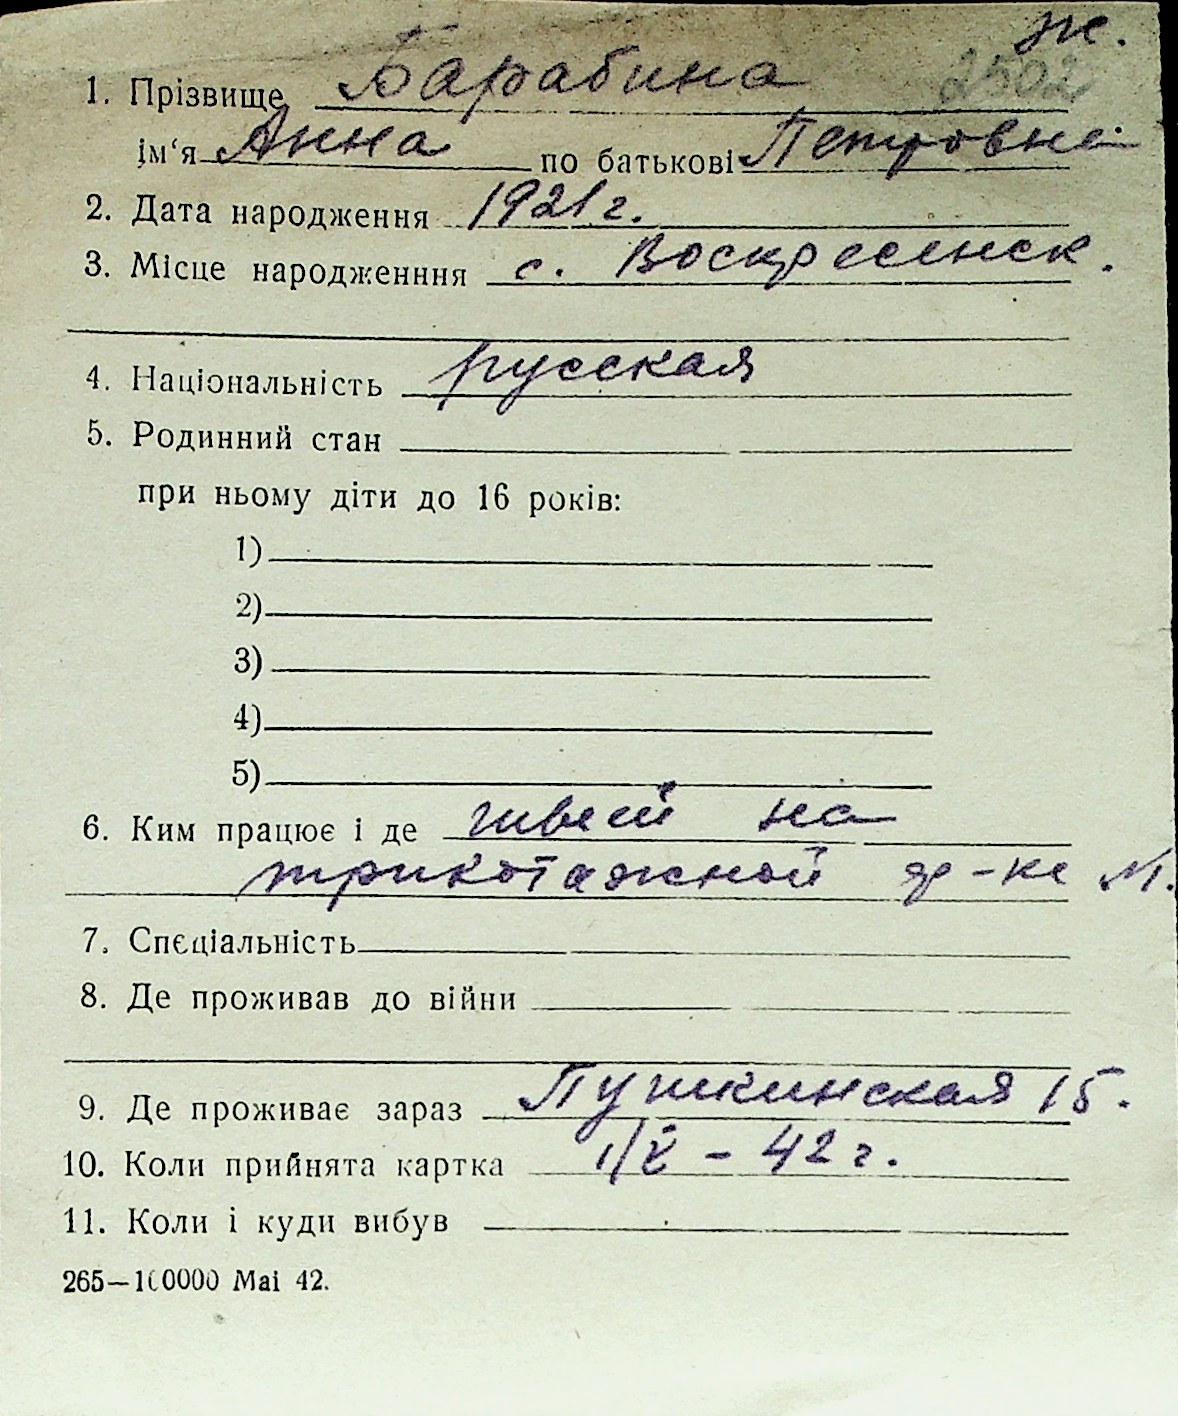 ж.
2502
1. Прізвище Барабина
ім'я Анна по батькові Петровна
2. Дата народження 1921 г.
3. Місце народженння с. Воскресенск.
4. Національність русская
5. Родинний стан
при ньому діти до 16 років:
1)
2)
3)
4)
5)
6. Ким працює і де швеей на
трикотажной ф-ке М.
7. Спєціальність
8. Де проживав до війни
9. Де проживає зараз Пушкинская 15.
10. Коли прийнята картка 1/X - 42 г.
11. Коли і куди вибув
265—100000 Mai 42.